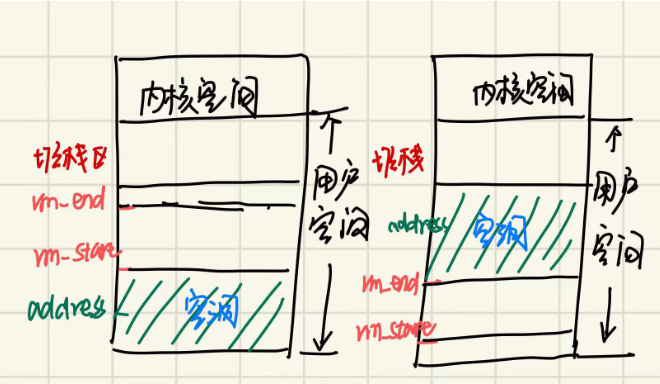 内核空间
堆栈区
vm_end
vm_start
address
空洞
用户
空间
内核空间
堆栈
address
空洞
vm_end
vm_stare
用户
空间